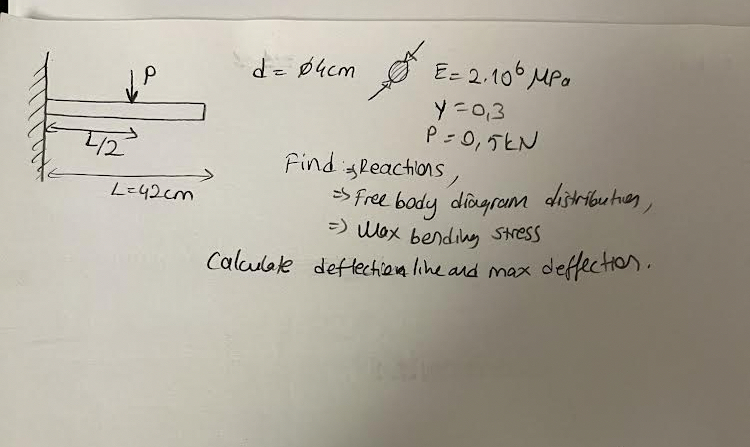 P
L/2
L=42cm
d= Ø4cm
E=2.10⁶ MPa
γ=0,3
P=0,5kN
Find :⇒Reactions,
⇒ Free body diagram distribution,
⇒ Max bending stress
Calculate deflection line and max deffection.